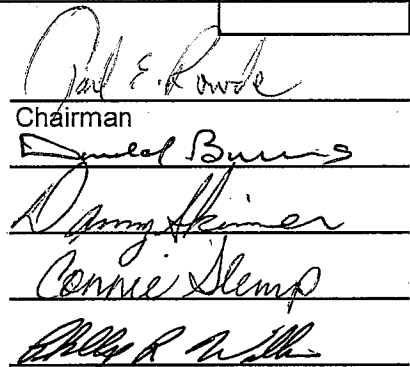 E. Rowde
Chairman
Donald Burns
Danny Skinner
Connie Slemp
R